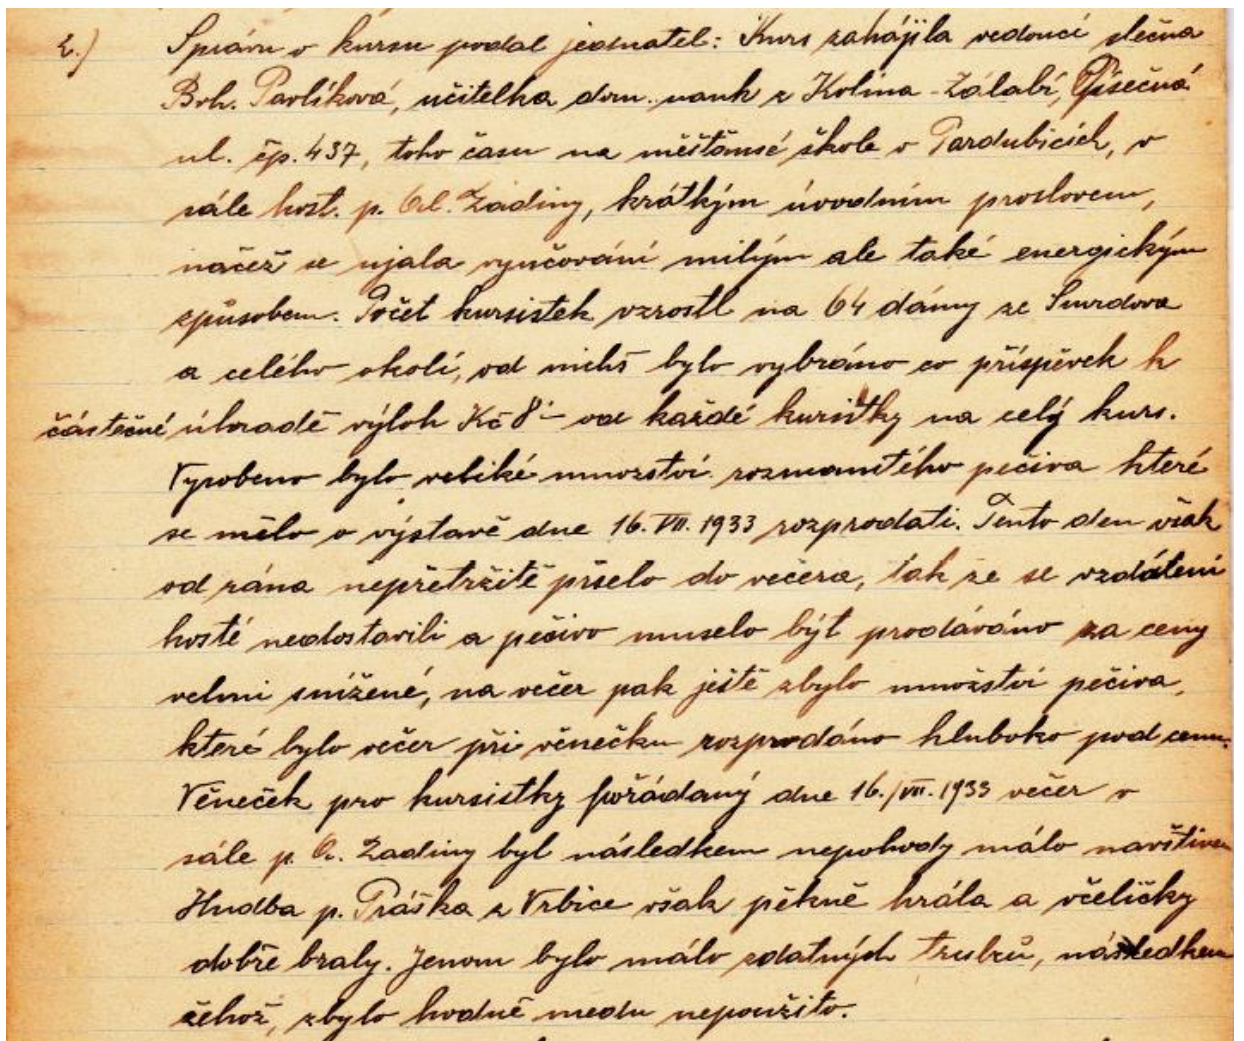 2.) Správu o kursu podal jednatel: Kurs zahájila vedoucí slečna
Boh. Pavlíková, učitelka dom. nauk z Kolína-Zálabí, Písečná
ul. čp. 437, toho času na měšťansé škole v Pardubicích, v
sále host. p. Ol. Zadiny, krátkým úvodním proslovem,
načež se ujala vyučování milým ale také energickým
způsobem. Počet kursistek vzrostl na 64 dámy ze Smrdova
a celého okolí, od nichš bylo vybráno co příspěvek k
částečné úhradě výloh Kč 8·- od každé kursistky na celý kurs.
Vyrobeno bylo veliké množství rozmanitého pečiva které
se mělo o výstavě dne 16. VII. 1933 rozprodati. Tento den však
od rána nepřetržitě pršelo do večera, tak že se vzdálení
hosté nedostavili a pečivo muselo být prodáváno za ceny
velmi snížené, na večer pak ještě zbylo množství pečiva,
které bylo večer při věnečku rozprodáno hluboko pod cenu.
Věneček pro kursistky pořádaný dne 16./VII. 1933 večer v
sále p. O. Zadiny byl následkem nepohody málo navštíven
Hudba p. Práška z Vrbice však pěkně hrála a včeličky
dobře braly. Jenom bylo málo zdatných trubců, následkem
čehož, zbylo hodně medu nepoužito.